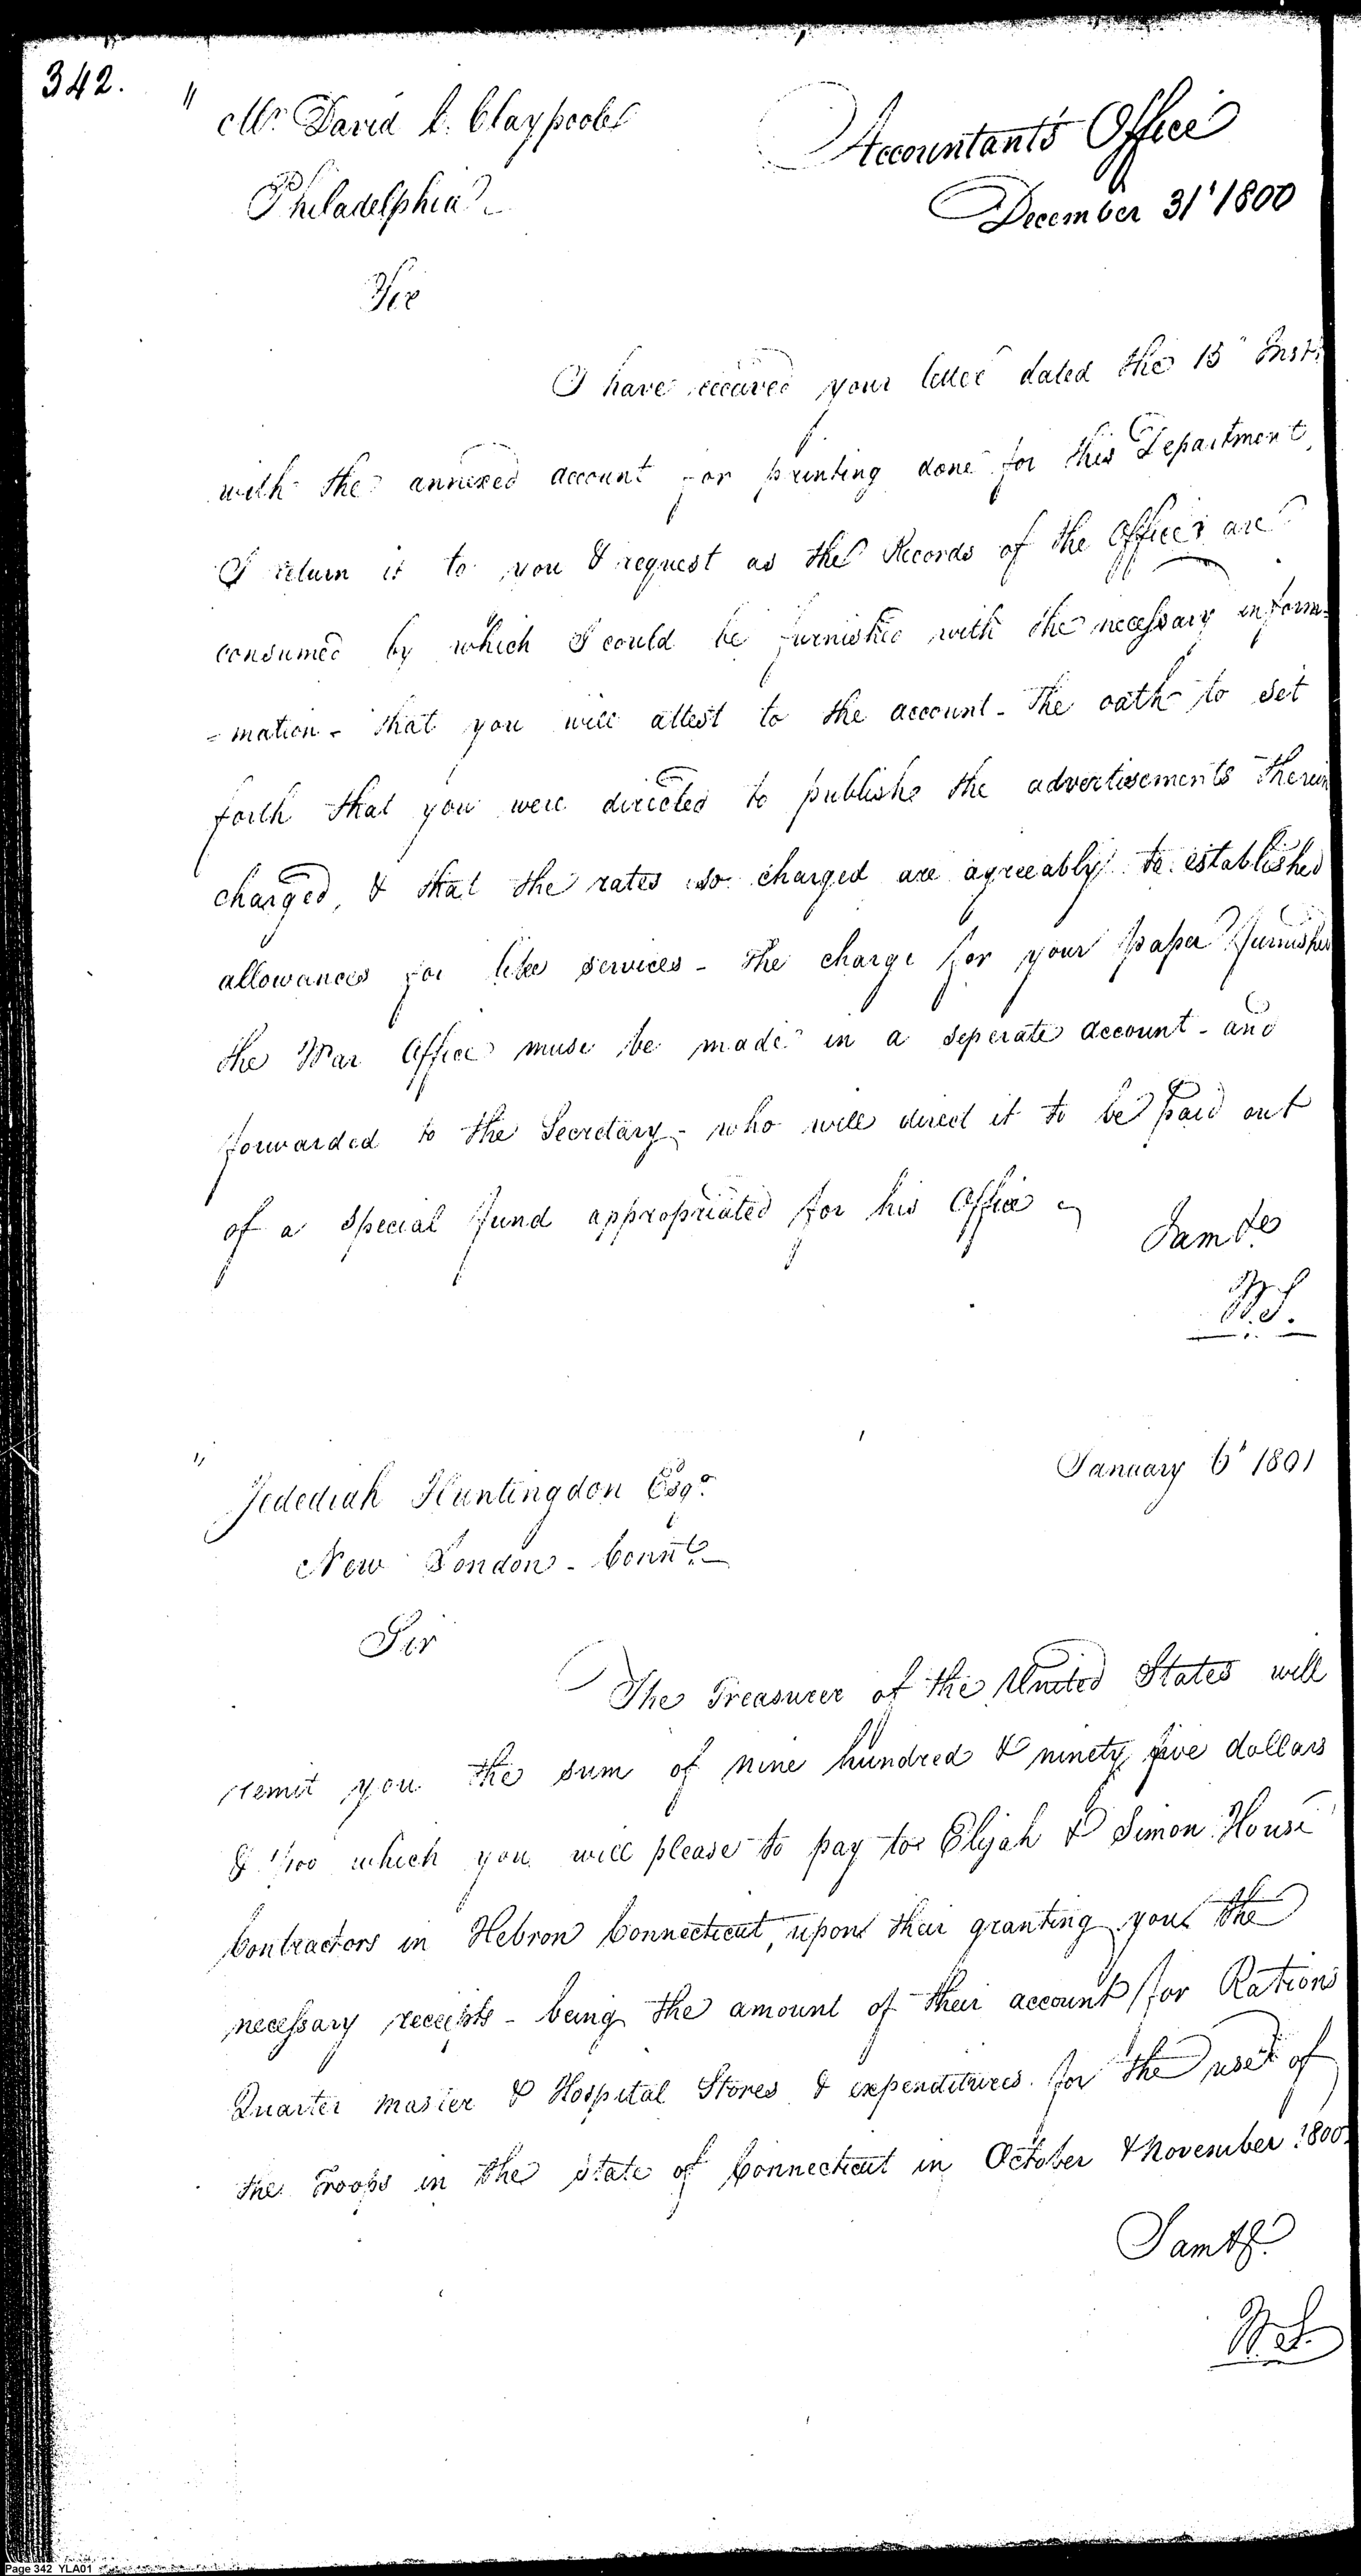 342.
" Mr. David C. Claypoole
Accountants Office
Philadelphia
December 31' 1800
Sir
I have received your letter dated the 15" Inst.
with the annexed account for printing done for this Department,
I return it to you & request as the Records of the Office are
consumed by which I could be furnished with the necessary infor=
=mation - that you will attest to the account - The oath to set
forth that you were directed to publish the advertisements therein
charged, & that the rates so charged are agreeably to established
allowances for like services - The charge for your paper furnished
the War Office must be made in a seperate account - and
forwarded to the Secretary - who will direct it to be paid out
of a special fund appropriated for his Office
I am &c
W.S.
January 6' 1801
" Jedediah Huntingdon Esqr.
New London - Connt.
Sir
The Treasurer of the United States will
remit you the sum of nine hundred & ninety five dollars
& 1/100 which you will please to pay to Elijah & Simon House
Contractors in Hebron Connecticut, upon their granting you the
necessary receipts - being the amount of their account for Rations
Quarter Master & Hospital Stores & expenditures for the use of
the Troops in the State of Connecticut in October & November 1800.
I am &c.
W.S.
Page 342 YLA01